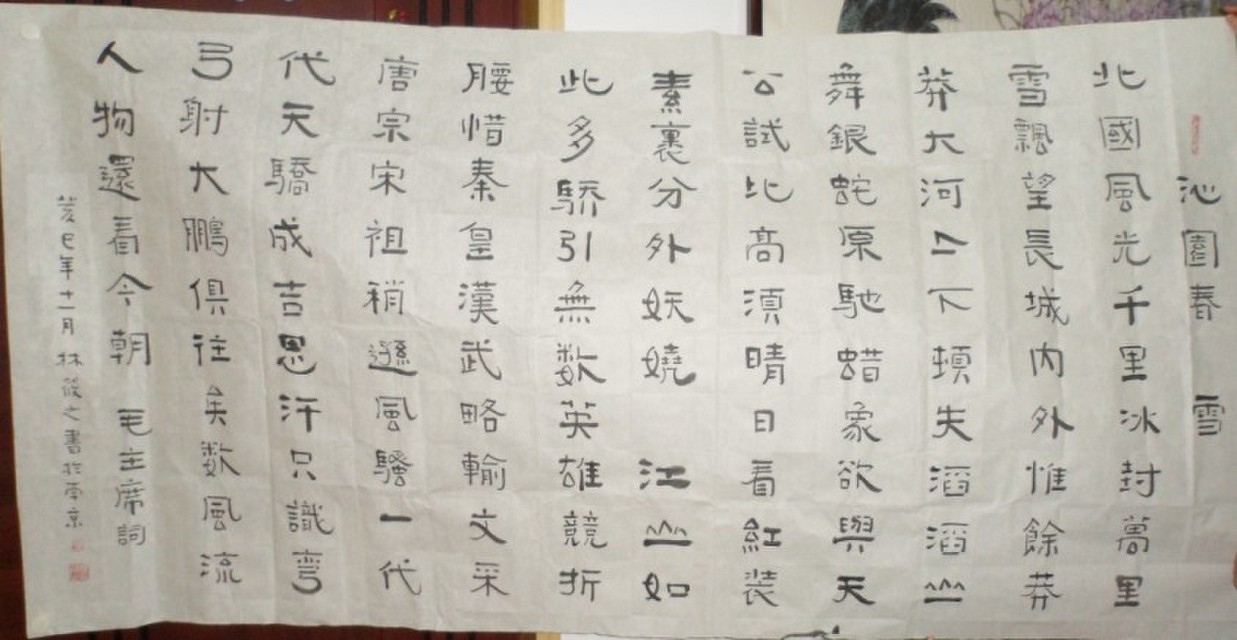 沁園春 雪
北國風光千里冰封萬里
雪飄望長城内外惟餘莽
莽大河上下頓失滔滔山
舞銀蛇原馳蜡象欲與天
公試比高須晴日看紅装
素裹分外妖嬈 江山如
此多驕引無数英雄競折
腰惜秦皇漢武略輸文采
唐宗宋祖稍遜風騷一代
代天驕成吉思汗只識弯
弓射大鵬俱往矣数風流
人物還看今朝 毛主席詞
癸巳年十一月 林筱之書於南京